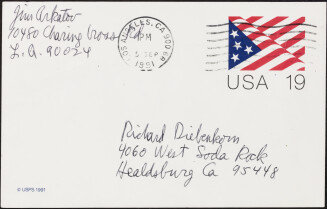 Jim Arkatov
10480 Charing Cross Rd
L.A. 90024
LOS ANGELES, CA 900
PM
1991
USA 19
Richard Diebenkorn
4060 West Soda Rock
Healdsburg Ca 95448
© USPS 1991